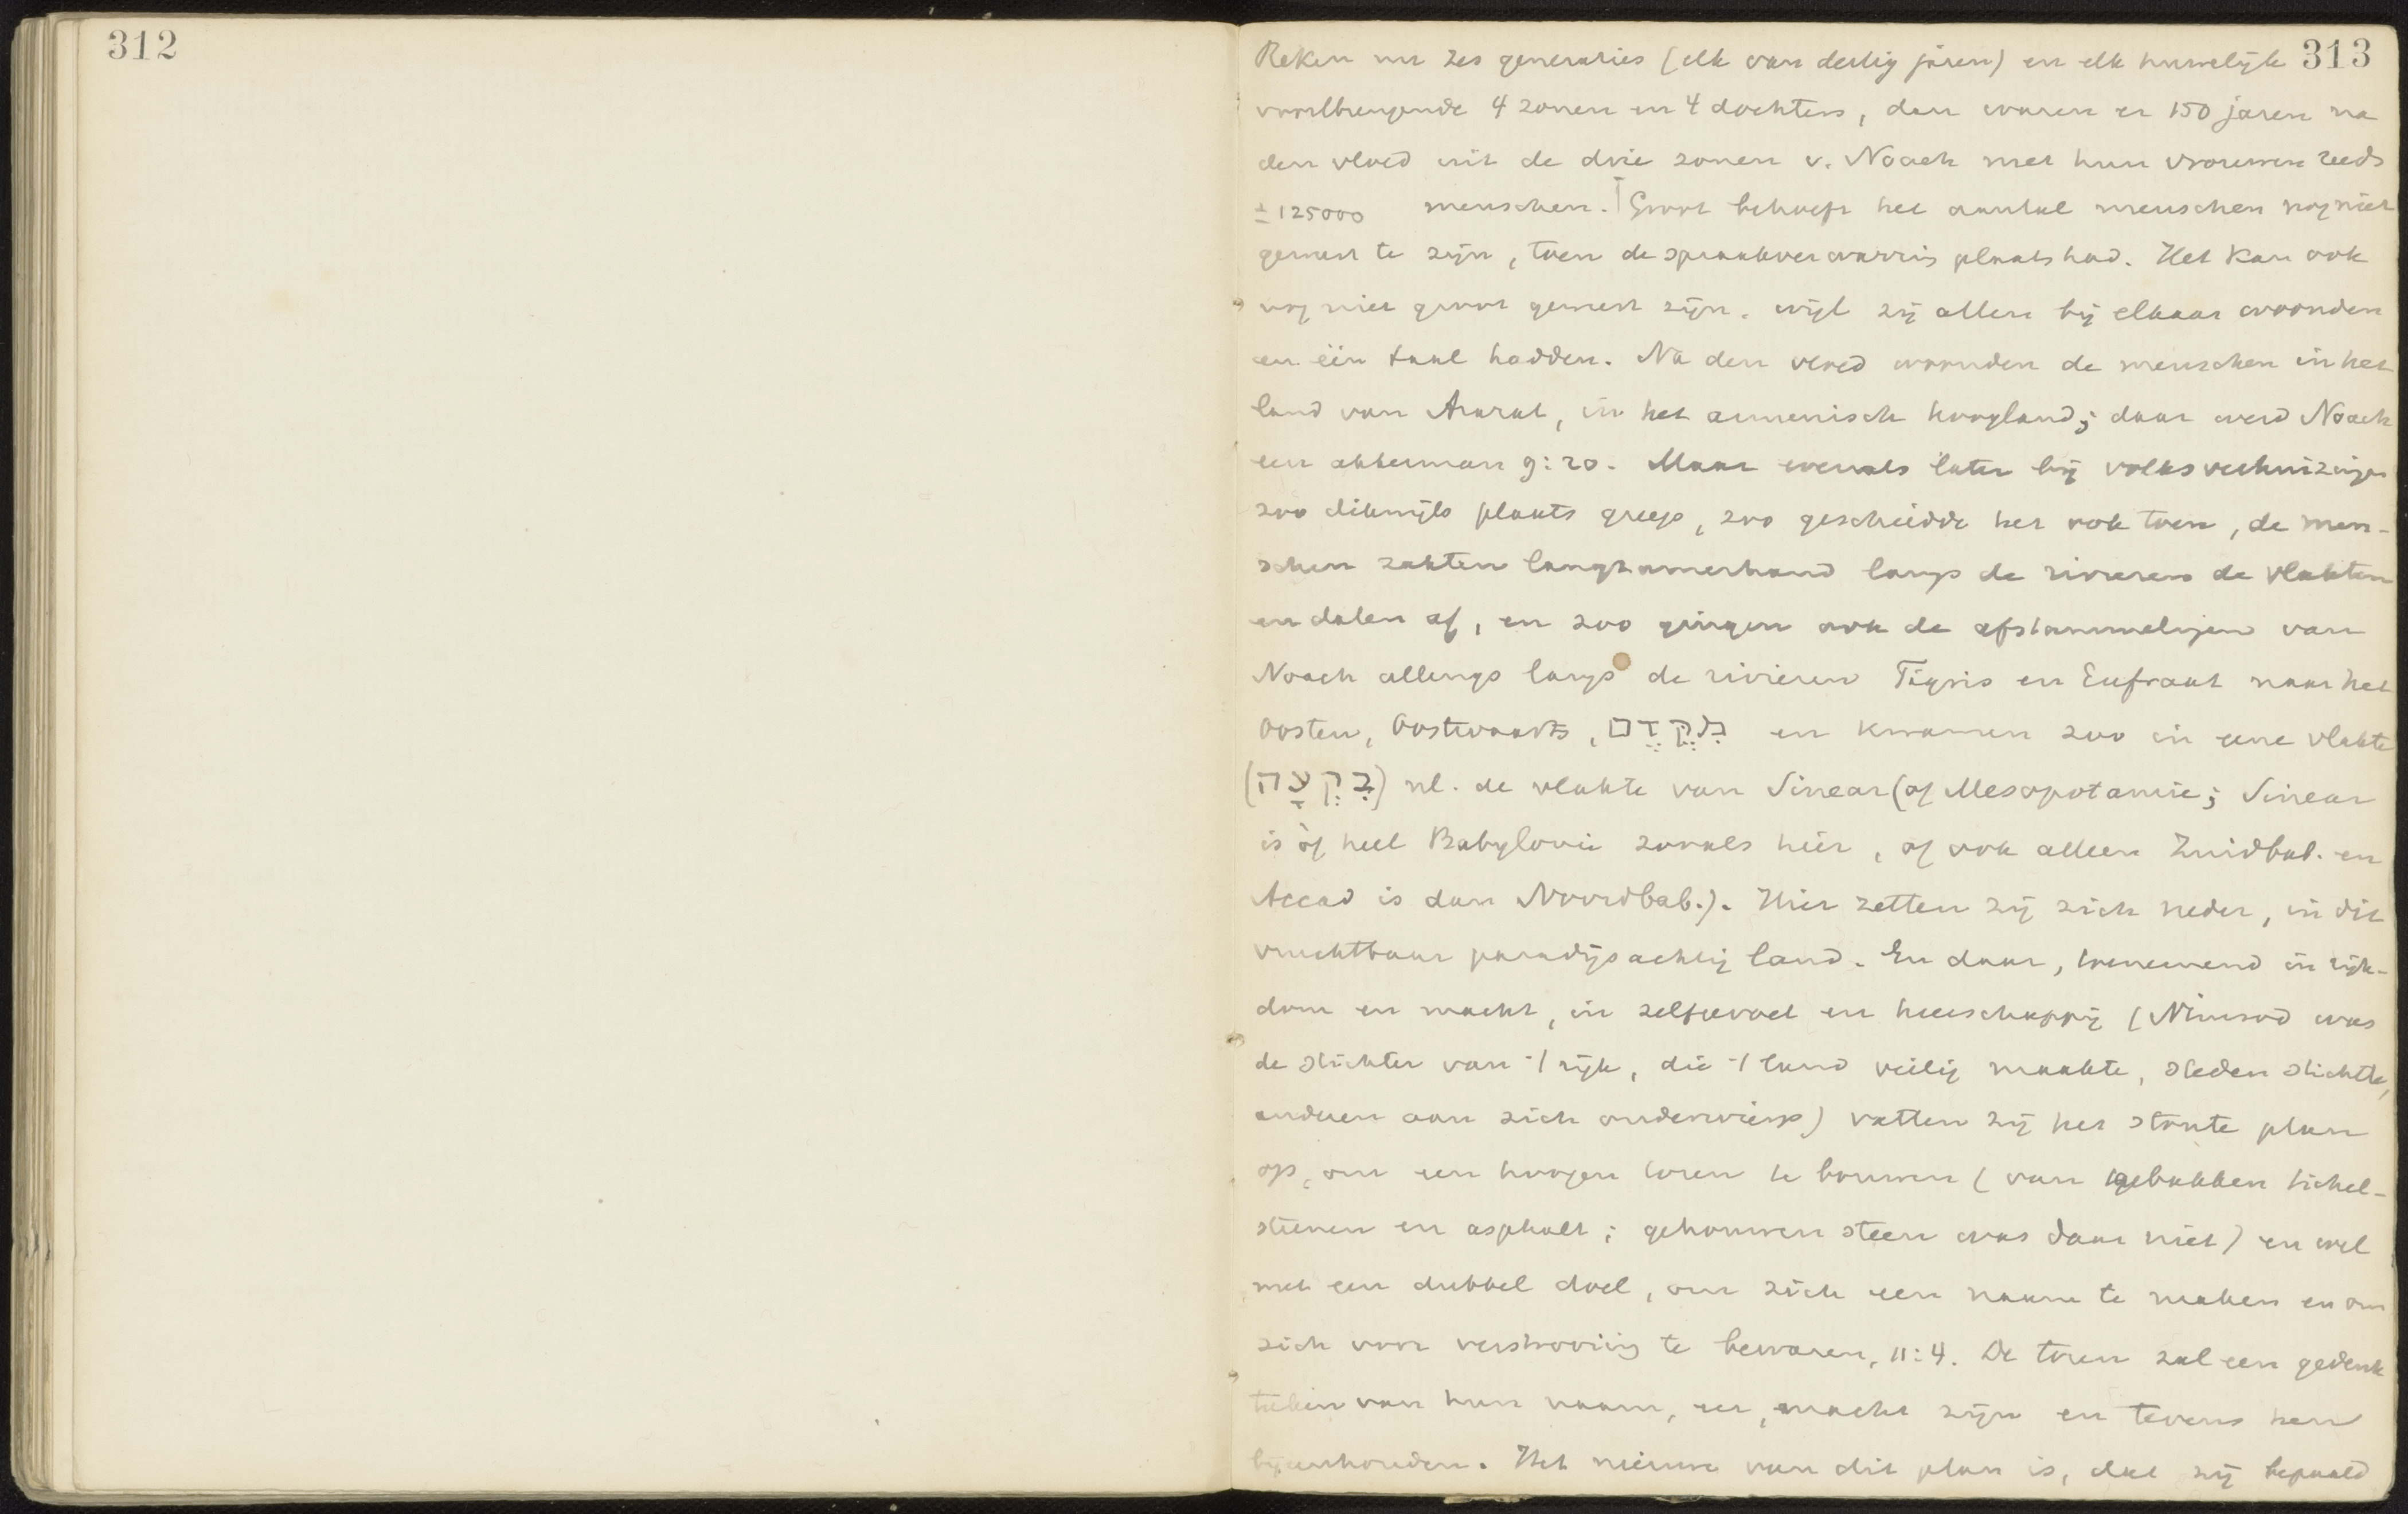 312
313
Reken nu zes generaties (elk van dertig jaren) en elk huwelijk
voortbrengende 4 zonen en 4 dochters, dan waren er 150 jaren na
den vloed uit de drie zonen v. Noach met hun vrouwen reeds
± 125000 menschen. | Groot behoeft het aantal menschen nog niet
geweest te zijn, toen de spraakverwarring plaats had. Het kan ook
nog niet groot geweest zijn, wijl zij allen bij elkaar woonden
en één taal hadden. Na den vloed woonden de menschen in het
land van Ararat, in het armenisch hoogland; daar werd Noach
een akkerman 9:20. Maar evenals later bij volksverhuizingen
zoo dikwijls plaats greep, zoo geschiedde het ook toen, de men-
schen zakten langzamerhand langs de rivieren de vlakten
en dalen af, en zoo gingen ook de afstammelingen van
Noach allengs langs de rivieren Tigris en Eufraat naar het
Oosten, Oostwaarts, מִקֶּדֶם en kwamen zoo in eene vlakte
(בִּקְעָה) nl. de vlakte van Sinear (of Mesopotamie; Sinear
is òf heel Babylonië zooals hier, of ook alleen Zuidbab. en
Accad is dan Noordbab.). Hier zetten zij zich neder, in dit
vruchtbaar paradijsachtig land. En daar, toenemend in rijk-
dom en macht, in zelfgevoel en heerschappij (Nimrod was
de stichter van 't rijk, die 't land veilig maakte, steden stichtte,
anderen aan zich onderwierp) vatten zij het stoute plan
op, om een hoogen toren te bouwen (van gebakken tichel-
steenen en asphalt; gehouwen steen was daar niet) en wel
met een dubbel doel, om zich een naam te maken en om
zich voor verstrooiing te bewaren, 11:4. De toren zal een gedenk
teeken van hun naam, eer, macht zijn en tevens hen
bijeenhouden. Het nieuwe van dit plan is, dat zij bepaald